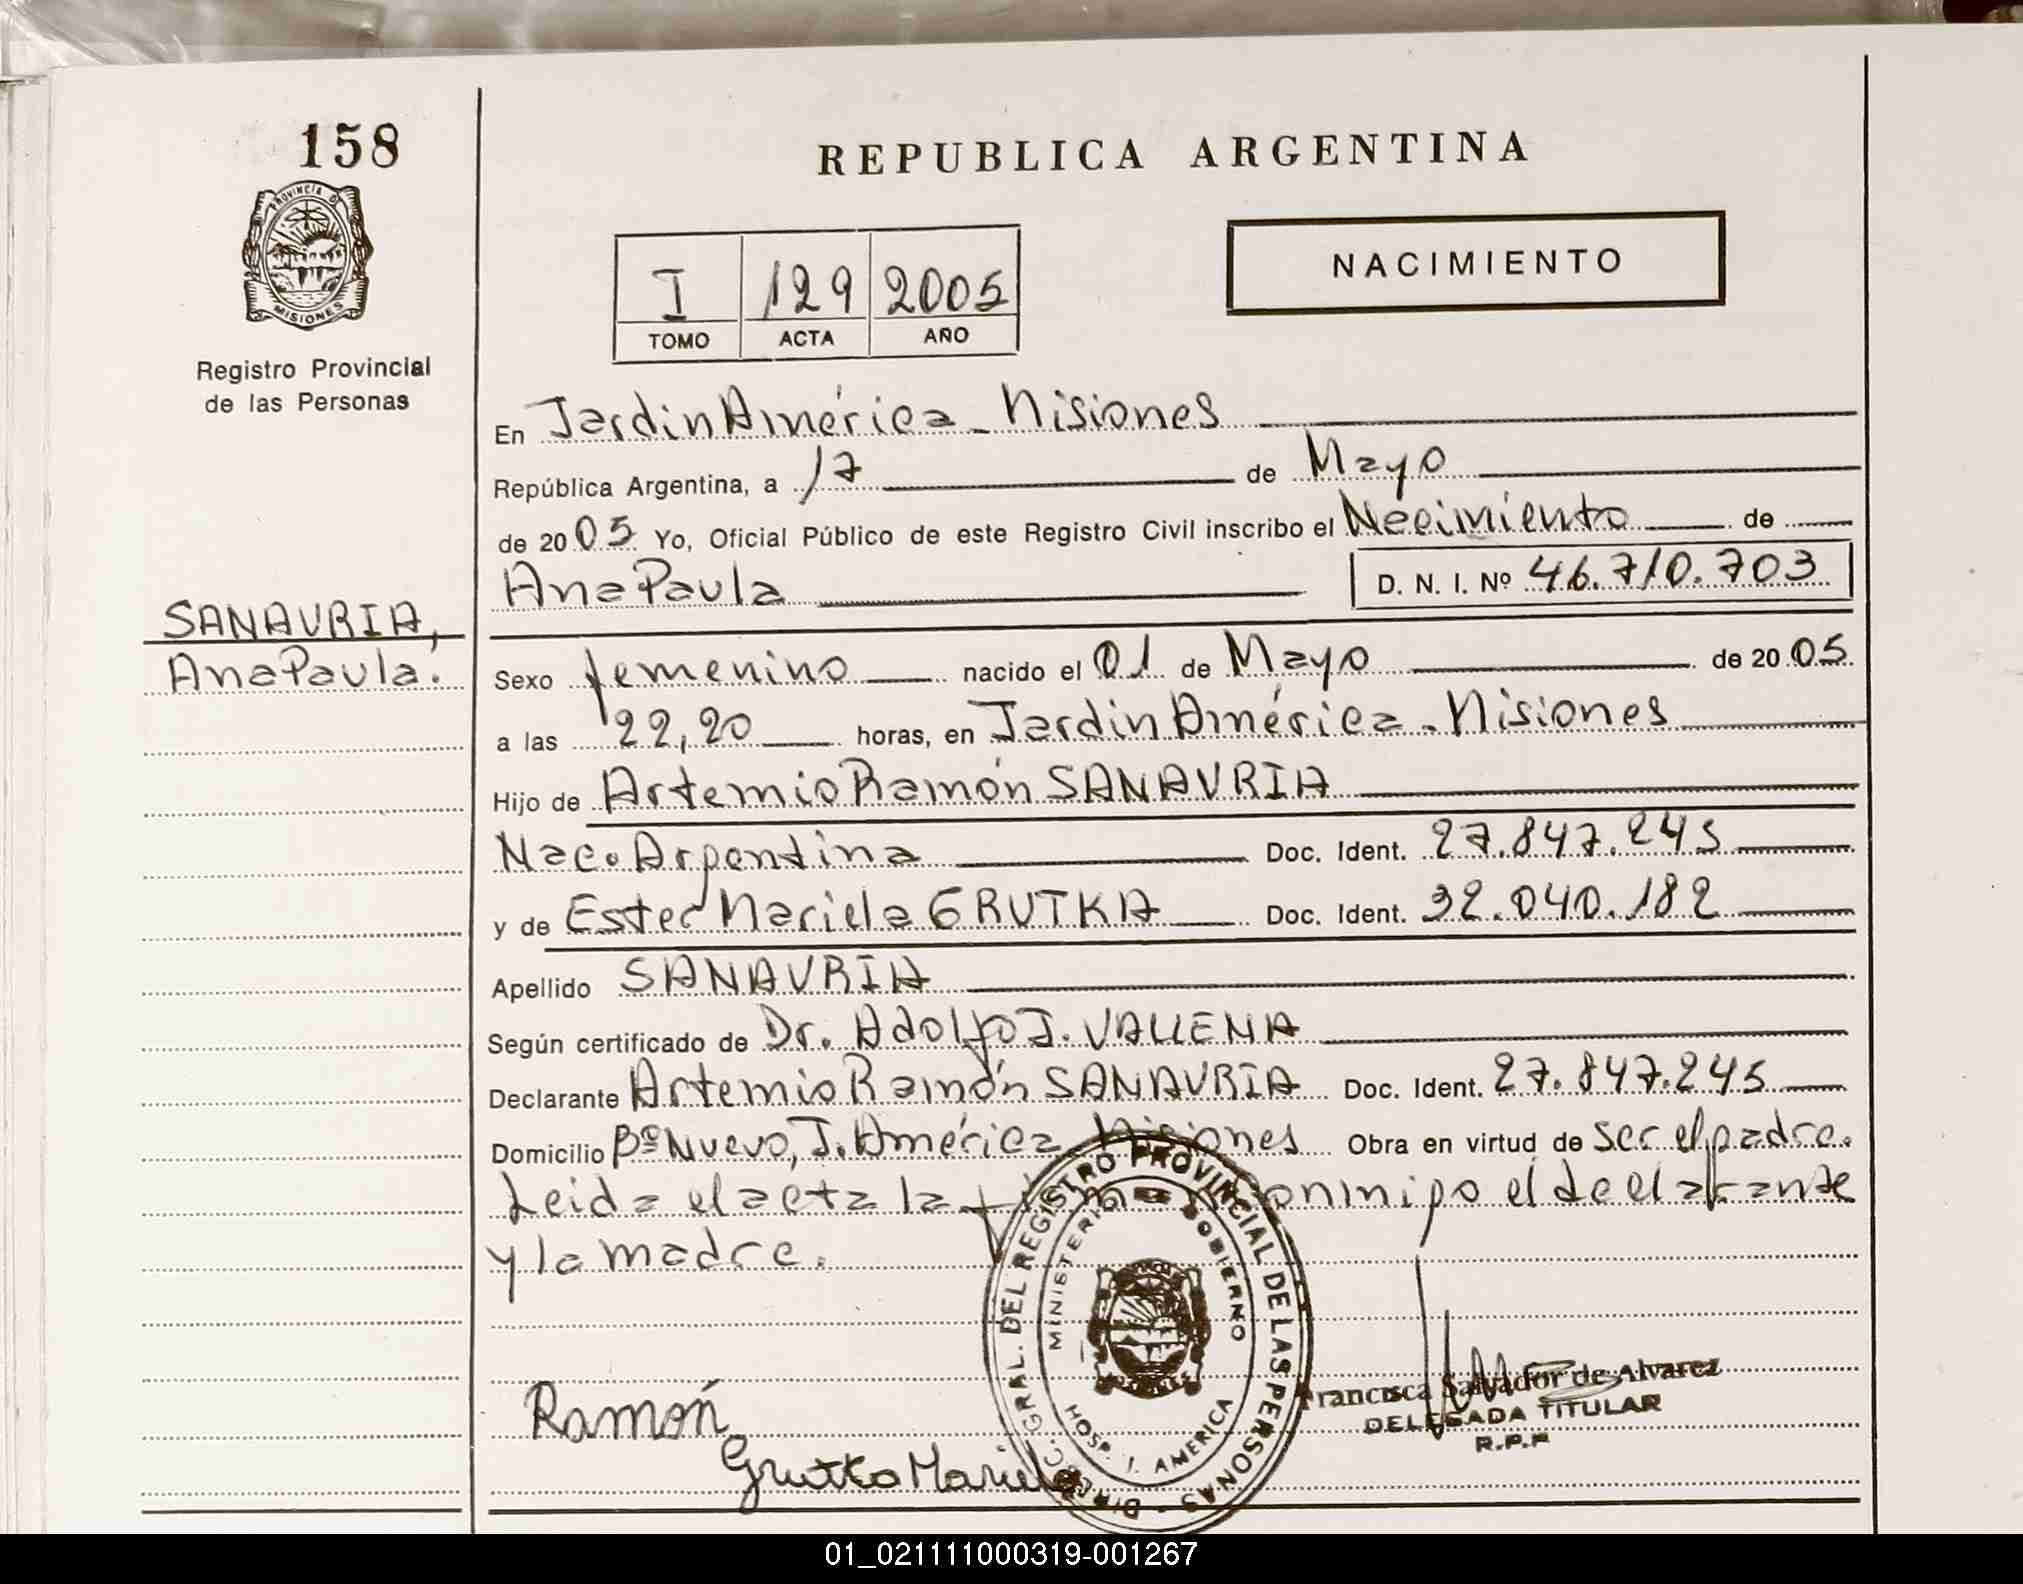 158
REPUBLICA ARGENTINA
PROVINCIA D
MISIONES
NACIMIENTO
I 129 2005
TOMO ACTA AÑO
Registro Provincial
de las Personas
En Jardin América - Misiones
República Argentina, a 17 de Mayo
de 2005 Yo, Oficial Público de este Registro Civil inscribo el Nacimiento de
Ana Paula D. N. I. Nº 46.710.703
SANAVRIA,
Ana Paula.
Sexo femenino nacido el 01 de Mayo de 2005
a las 22,20 horas, en Jardin América - Misiones
Hijo de Artemio Ramón SANAVRIA
Nac. Argentina Doc. Ident. 27.847.245
y de Ester Mariela GRUTKA Doc. Ident. 32.040.182
Apellido SANAVRIA
Según certificado de Dr. Adolfo J.
Declarante Artemio Ramón SANAVRIA Doc. Ident. 27.847.245
Domicilio Bº Nuevo, J. América Misiones Obra en virtud de ser el padre.
Leida el acta la conmigo el declarante
y la madre.
DIRECC. GRAL. DEL REGISTRO PROVINCIAL DE LAS PERSONAS -
MINISTERIO DE GOBIERNO
HOSP. J. AMERICA
Ramón
Grutka Mariela
Francisca Salvador de Alvarez
DELEGADA TITULAR
R.P.P
01_021111000319-001267